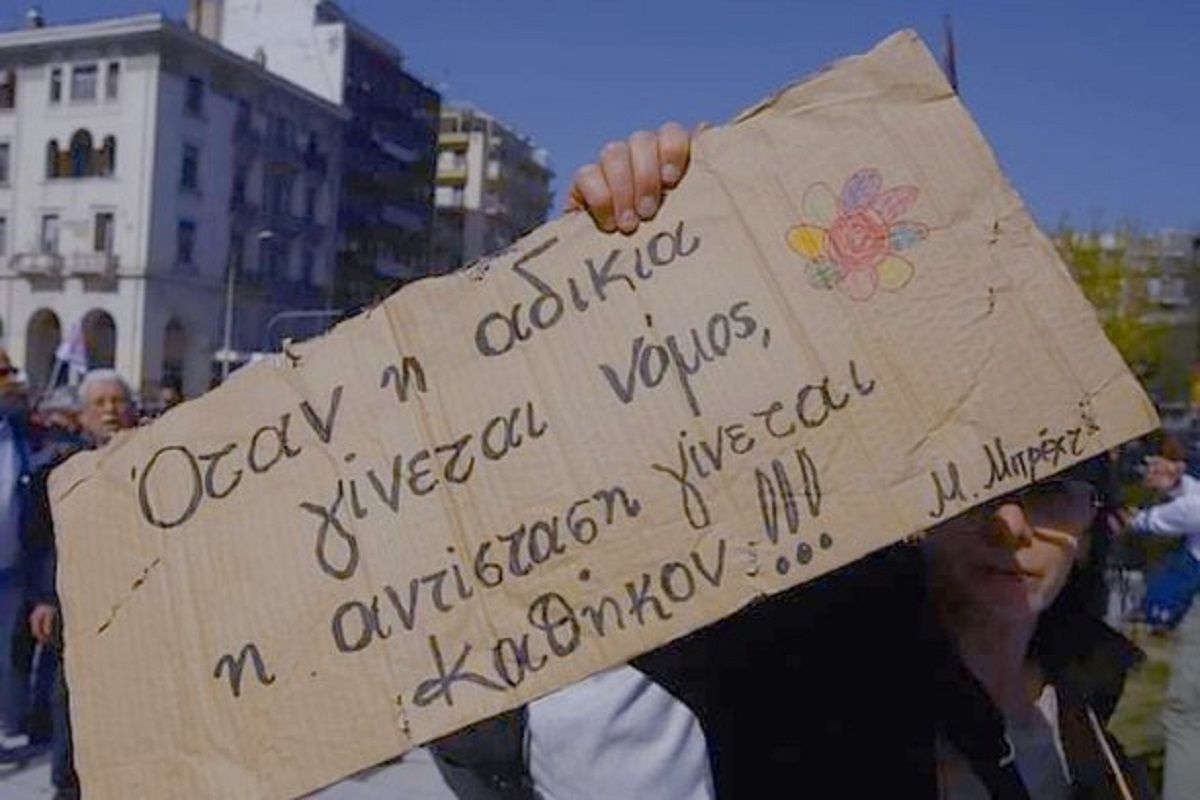 Όταν η αδικια
γίνεται νόμος,
η αντίσταση γίνεται
καθήκον !!!
Μ. Μπρέχτ